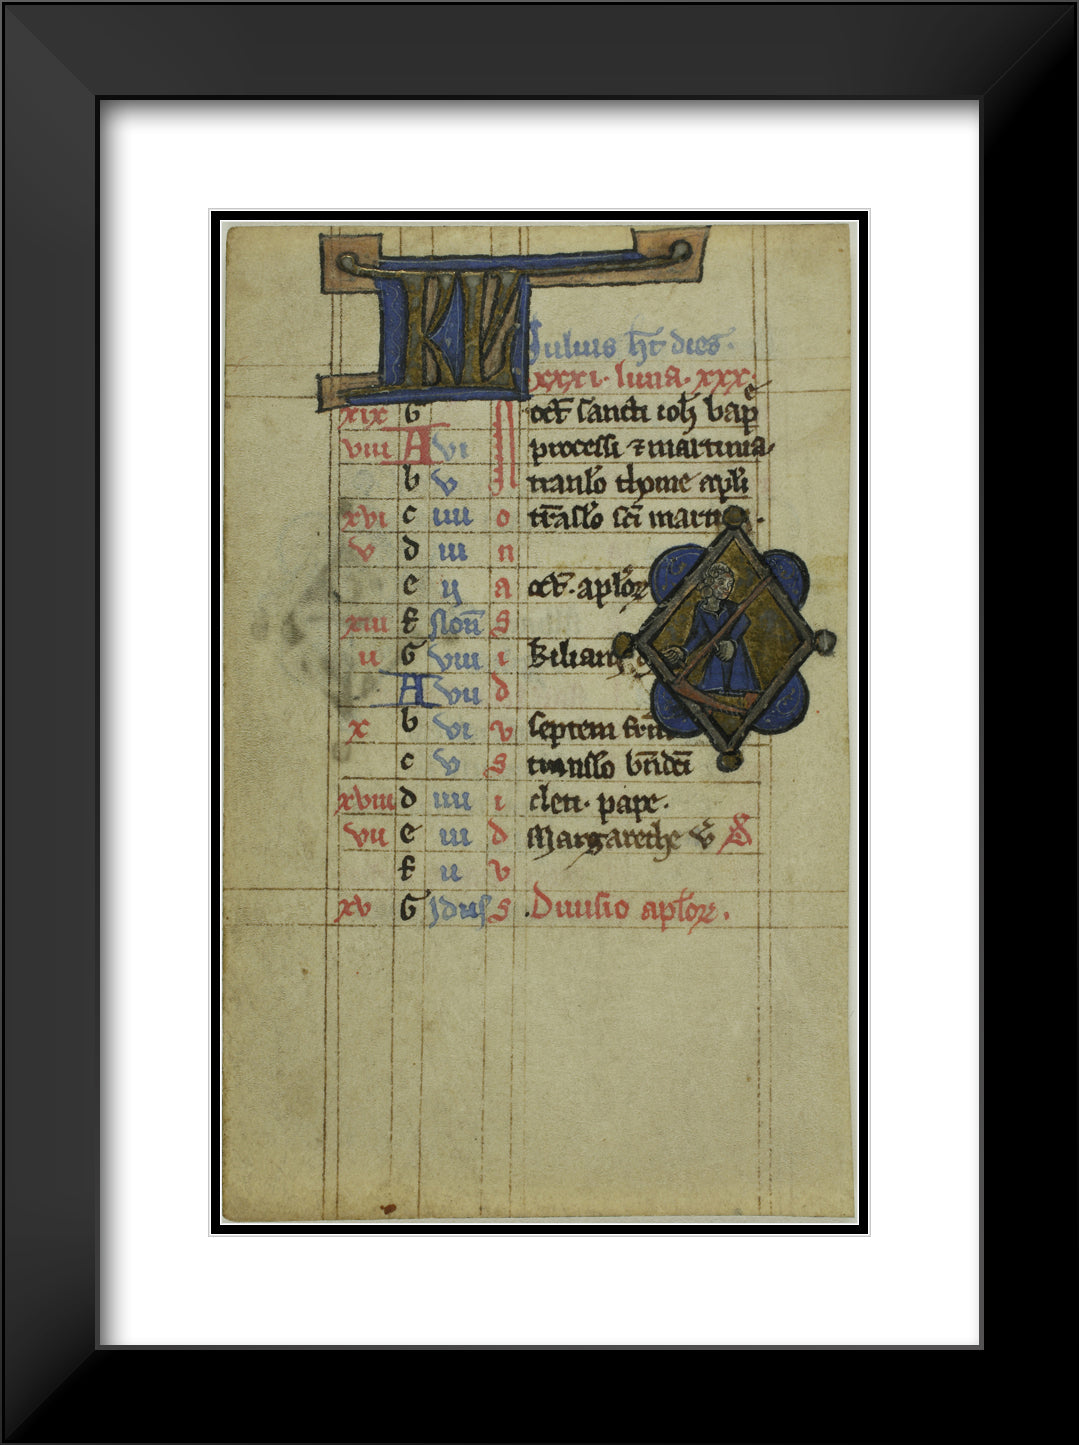 KL
Iulius ht dies.
xxxi. luna. xxx.
xix G oct sancti ioh bapte
viii A vi processi ⁊ martinia.
b v translo thome apli
xvi c iiii o trāslo sci marti
v d iii n
e ii a oct. aplor
xiii f Non s
ii G viii i Kilian
A vii d
x b vi v septem frm
c v s translo bndcī
xviii d iiii i cleti. pape.
vii e iii d Margarethe v̄
f ii v
xv G Idus s Diuisio aplor.